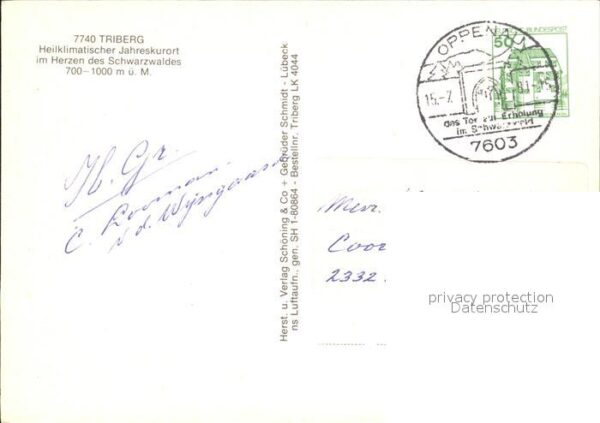 7740 TRIBERG
Heilklimatischer Jahreskurort
im Herzen des Schwarzwaldes
700–1000 m ü. M.
H. Gr.
C.
v. d.
Herst. u. Verlag Schöning & Co + Gebrüder Schmidt - Lübeck
ns Luftaufn., gen. SH 1-80864 - Bestellnr. Triberg LK 4044
OPPENAU
15.-7.
das Tor zur Erholung
im Schwarzwald
7603
50
BUNDESPOST
Mevr.
Coor
2332.
privacy protection
Datenschutz